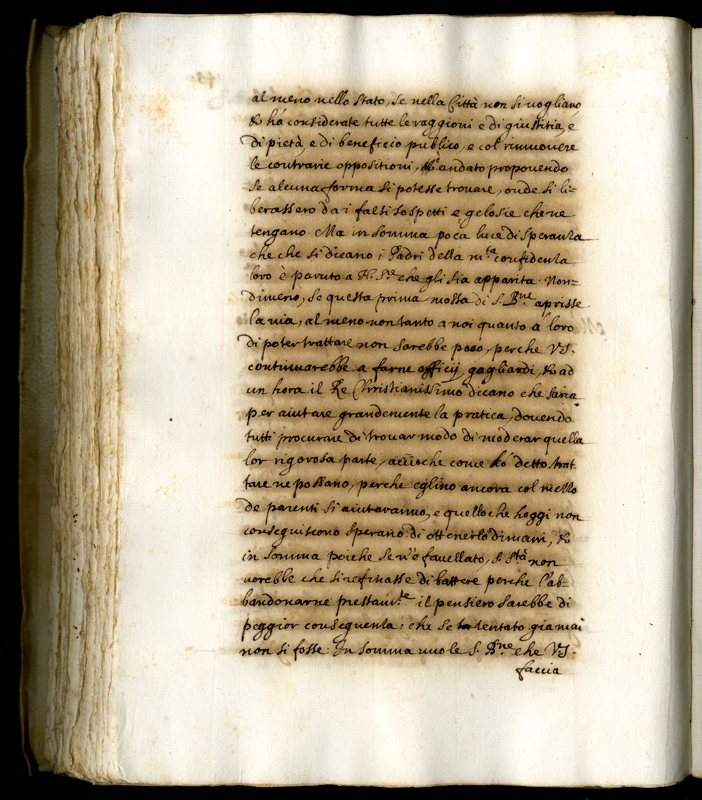 al meno nello stato, se nella Città non si vogliano
& hà considerate tutte le raggioni e di giustitia, e
di pietà, e di beneficio publico, e col rimmovere
le contrarie oppositioni, andato proponendo
se alcuna forma si potesse trovare, onde si li=
berassero da i falsi sospetti e gelosie che ne
tengano. Ma in somma poca luce di speranza
che che si dicano i Padri della m.ta confidenza
loro è paruto a N. S.re che gli sia apparita. Non=
dimeno, se questa prima mossa di S. B.ne aprisse
la via, al meno non tanto a noi quanto à loro
di poter trattare non sarebbe poco, perche V.S.
continuarebbe a farne officij gagliardi, & ad
un hora il Re Christianissimo dicano che saria
per aiutare grandemente la pratica, dovendo
tutti procurare di trovar modo di moderar quella
lor rigorosa parte, acciò che come hò detto trat
tare ne possano, perche eglino ancora col mezzo
de parenti si aiutaranno, e quello che hoggi non
conseguiscono sperano di ottenerlo dimani, &
in somma poiche se n'è favellato, S. S.tà non
vorebbe che si refinasse di battere perche l'ab=
bandonarne prestam.te il pensiero sarebbe di
peggior conseguenza, che se tentato giamai
non si fosse. In somma vuole S. B.ne che V.S.
faccia